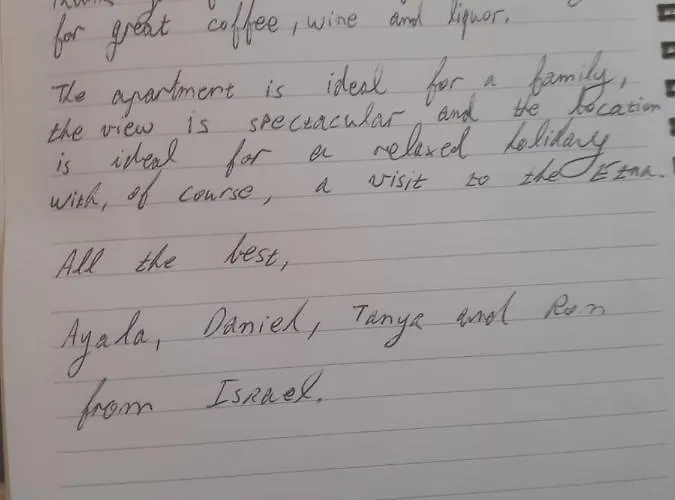 for great coffee, wine and liquor.
The apartment is ideal for a family,
the view is spectacular and the location
is ideal for a relaxed holiday
with, of course, a visit to the Etna.
All the best,
Ayala, Daniel, Tanya and Ron
from Israel.